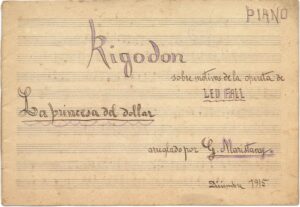 PIANO
Rigodon
sobre motivos de la opereta de
LEO FALL
La princesa del dollar
arreglado por G. Maristany
Diciembre 1915